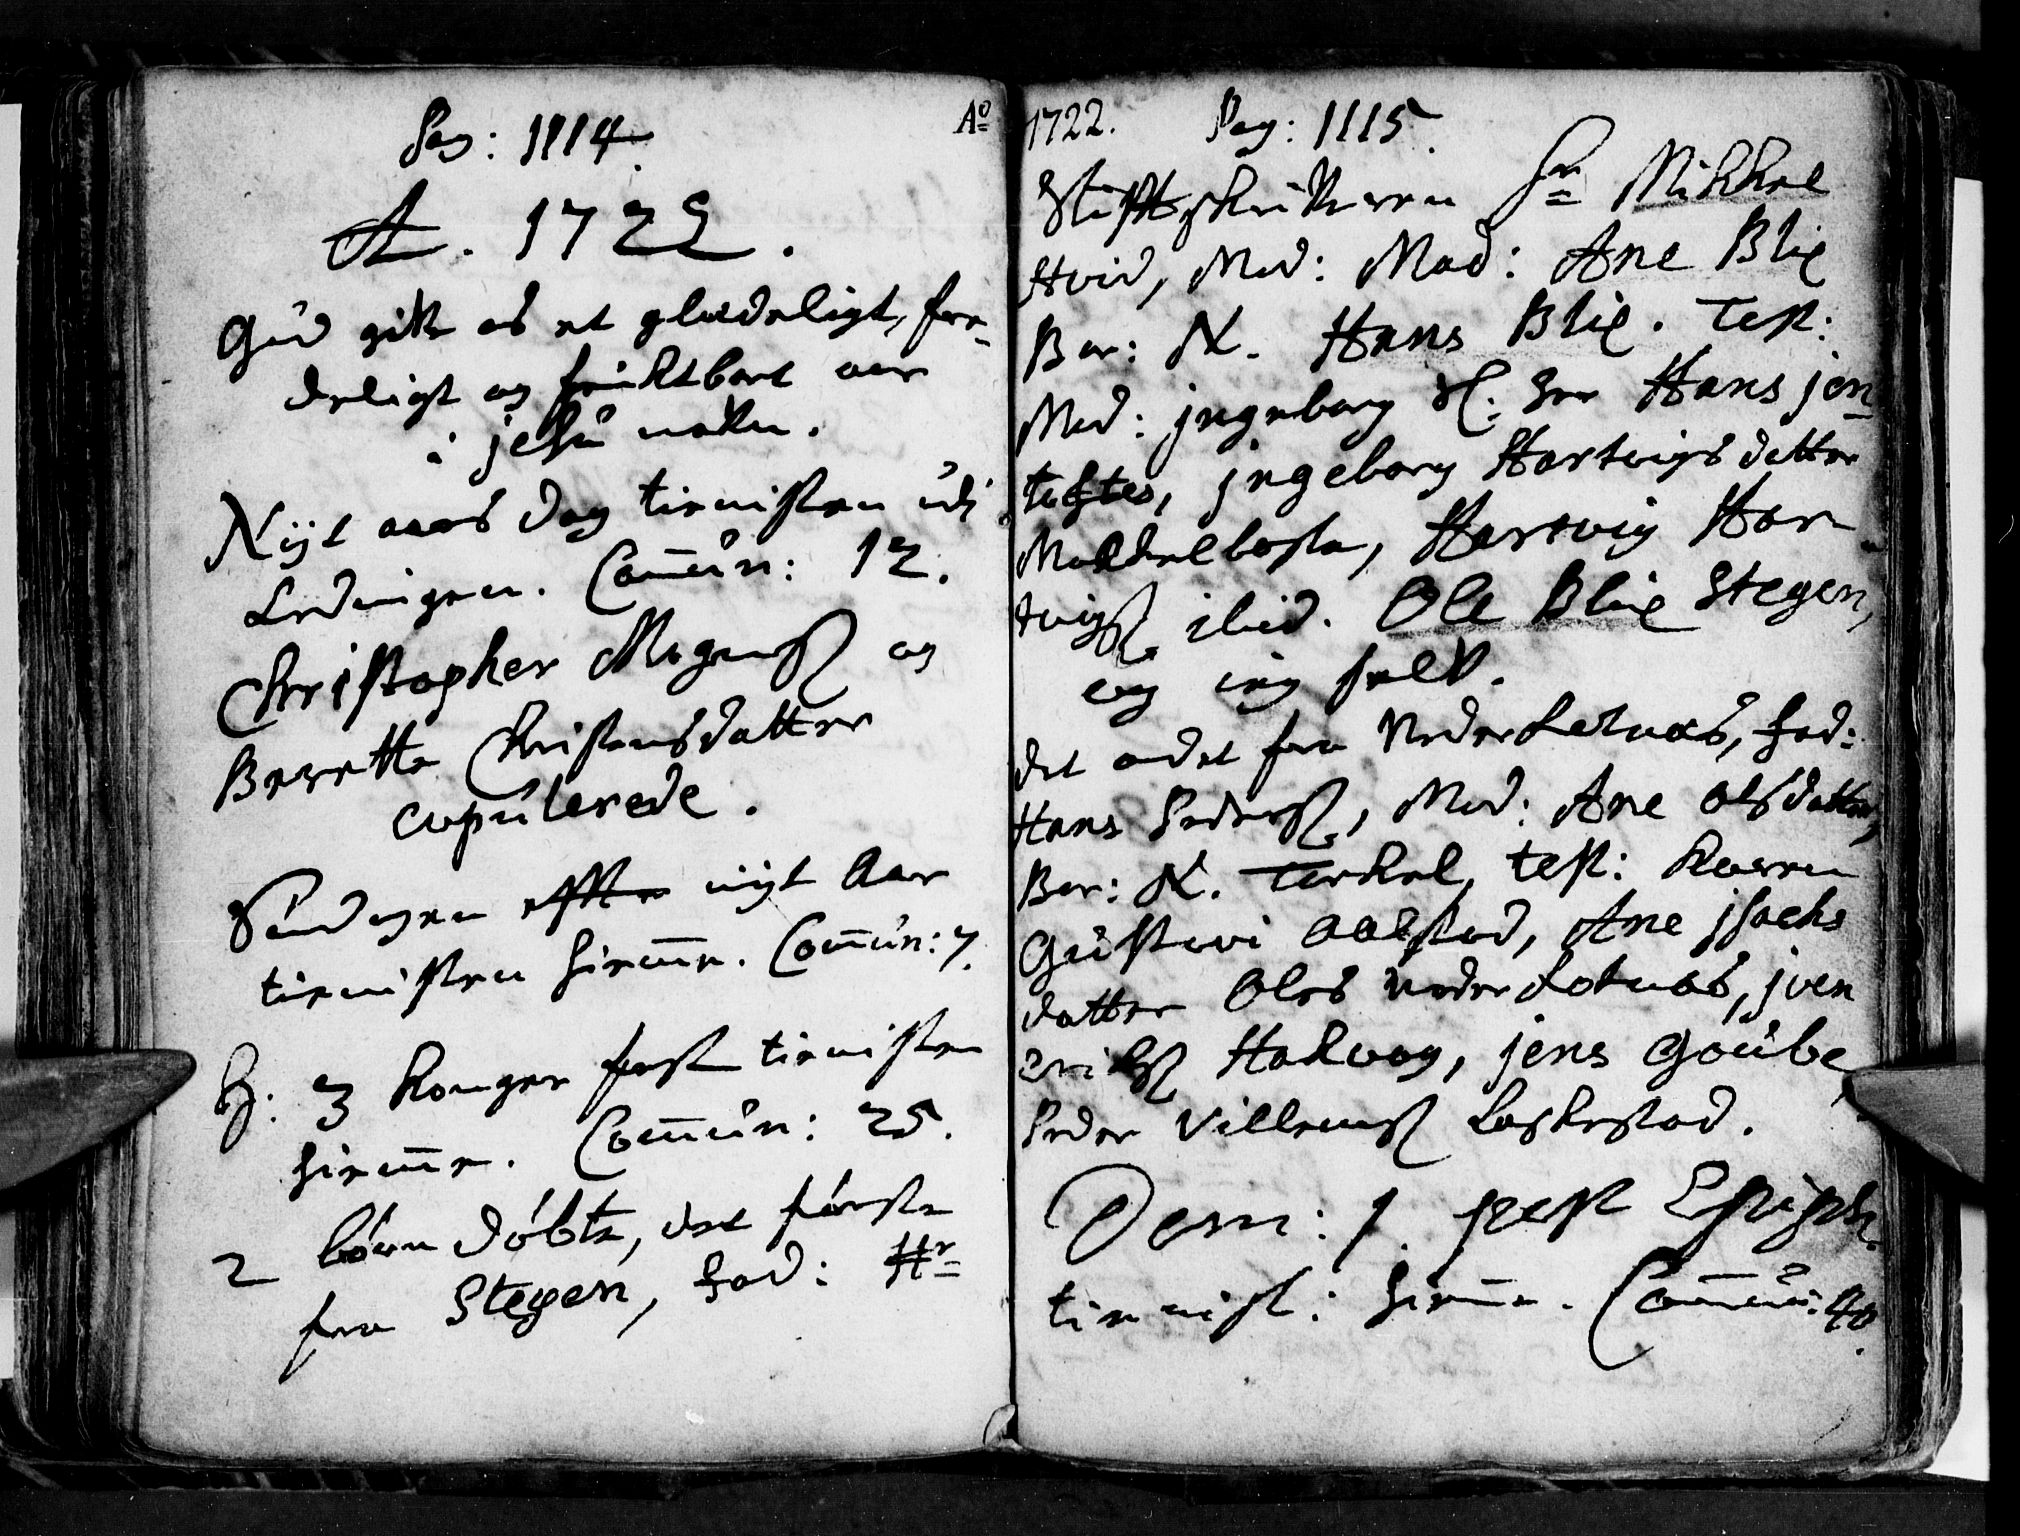 Pag: 1114.
Ao
A. 1722.
Gud gife os et glædeligt, fre-
deligt og fruchtbart aar
i jesu nafn.
Nyt aars dag tienisten udi
Ledingen. Com̄un: 12.
Christopher Mogensß og
Berette Christensdatter
copulerede.
Søndagen effter nyt Aar
tienisten hiem̄e. Com̄un: 7.
H: 3 Konger fest tienisten
hiem̄e. Com̄un: 25.
2 børn døbte, det første
fra Stegen, fad: Hr
1722. Pag: 1115.
Stifftsskrifveren Sr Mikkel
Hvid, Mod: Mad: Ane Blix
Bar: N. Hans Blix. Test:
Mad: jngeborg Hans jen-
tofftes, jngeborg Hartvigsdatter
Hartvig Har-
tvigß ibid. Ole Blix Stegen,
og jeg self.
det andet fra Nederleines, fad:
Hans Pedersß, Mod: Ane Olsdatter,
Bar: N. Terkel, test: Karen
Gustavi Aalstad, Ane jsachs
datter Oles jven
Erichß Hakvog, jens Goube,
Peder Villemsß Laskestad.
Dom: 1. post Epiph.
tienist: hiem̄e. Com̄un: 40.